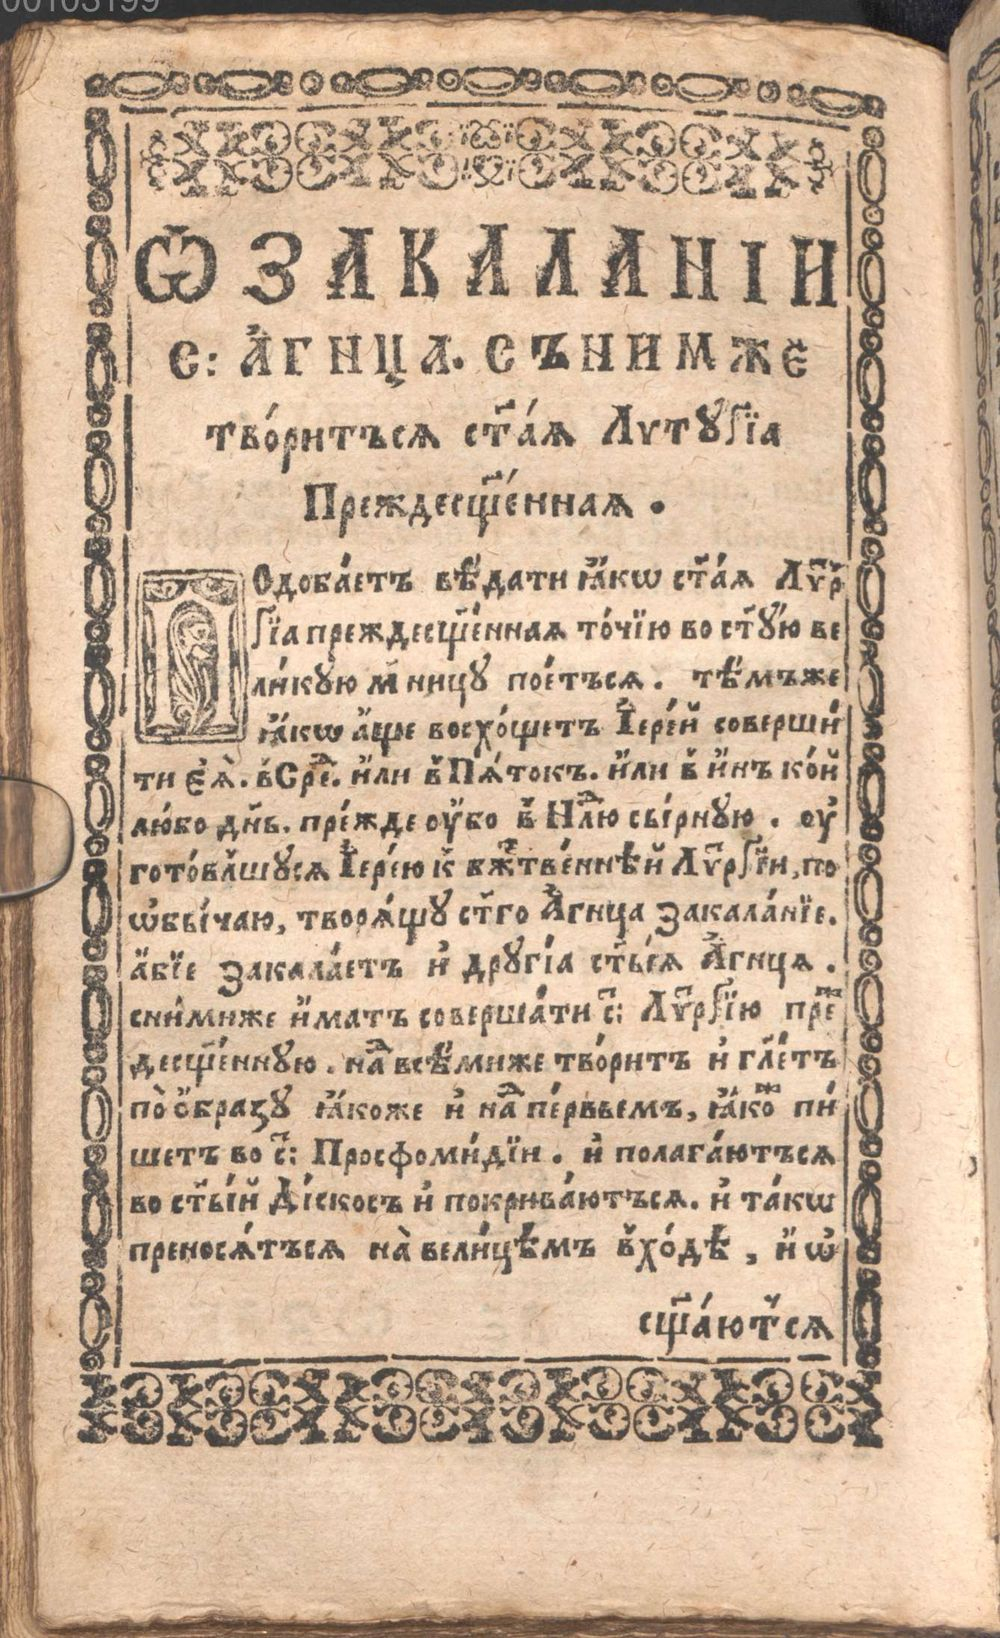 00103199
Ѿ ЗАКАЛАНІИ
С: А҆ГНЦА. СЪНИМЖЕ
тво́ритъсѧ ст҃а́ѧ Лѵтꙋргі́а
Преждесщ҃е́ннаѧ.
ПОдоба́етъ вѣ́дати ꙗ҆́кѡ ст҃а́ѧ Лѵ̾р
гі́а преждесщ҃е́ннаѧ то́чїю во ст҃ꙋ́ю ве
ли́кꙋю м҃ницꙋ пое́тъсѧ. тѣ́мъже
ꙗ҆́кѡ а҆́ще восхо́щетъ І҆ере́й соверши́
ти є҆ѧ̀. в́ Срⷣе. и҆́ли в̾ Пѧ́токъ. и҆́ли в̾ и҆́нъ ко́й
лю́бо д҃нь. пре́жде оу҆́бо в̾ Нлⷣю сы́рнꙋю. оу҆
гото́влшꙋсѧ І҆ере́ю к̾ бжⷭ҇тве́ннѣй Лѵ̾ргі́и, по
ѡ҆бы́чаю, творѧ́щꙋ ст҃го А҆́гнца закала́нїе.
а҆́бїе закала́етъ и҆ дрꙋгі́а ст҃ы́ѧ А҆́гнцѧ.
сни́миже и҆́матъ соверша́ти с҃: Лѵ̾ргі́ю преⷤ
десщ҃е́ннꙋю. наⷣ всѣ́миже тво́ритъ и҆ гл҃етъ
по̀ о҆́бразꙋ ꙗ҆́коже и҆ наⷣ пе́рвьемъ, ꙗ҆́коⷤ пи́
шетъ во с҃: Просфоми́дїи. и҆ полага́ютъсѧ
во ст҃ы́й Ді́скосъ и҆ покрива́ютъсѧ. и҆ та́кѡ
преносѧ́тъсѧ на̀ вели́цѣмъ в̾хо́дѣ, и҆ ѡ҆
сщ҃а́ютⸯсѧ